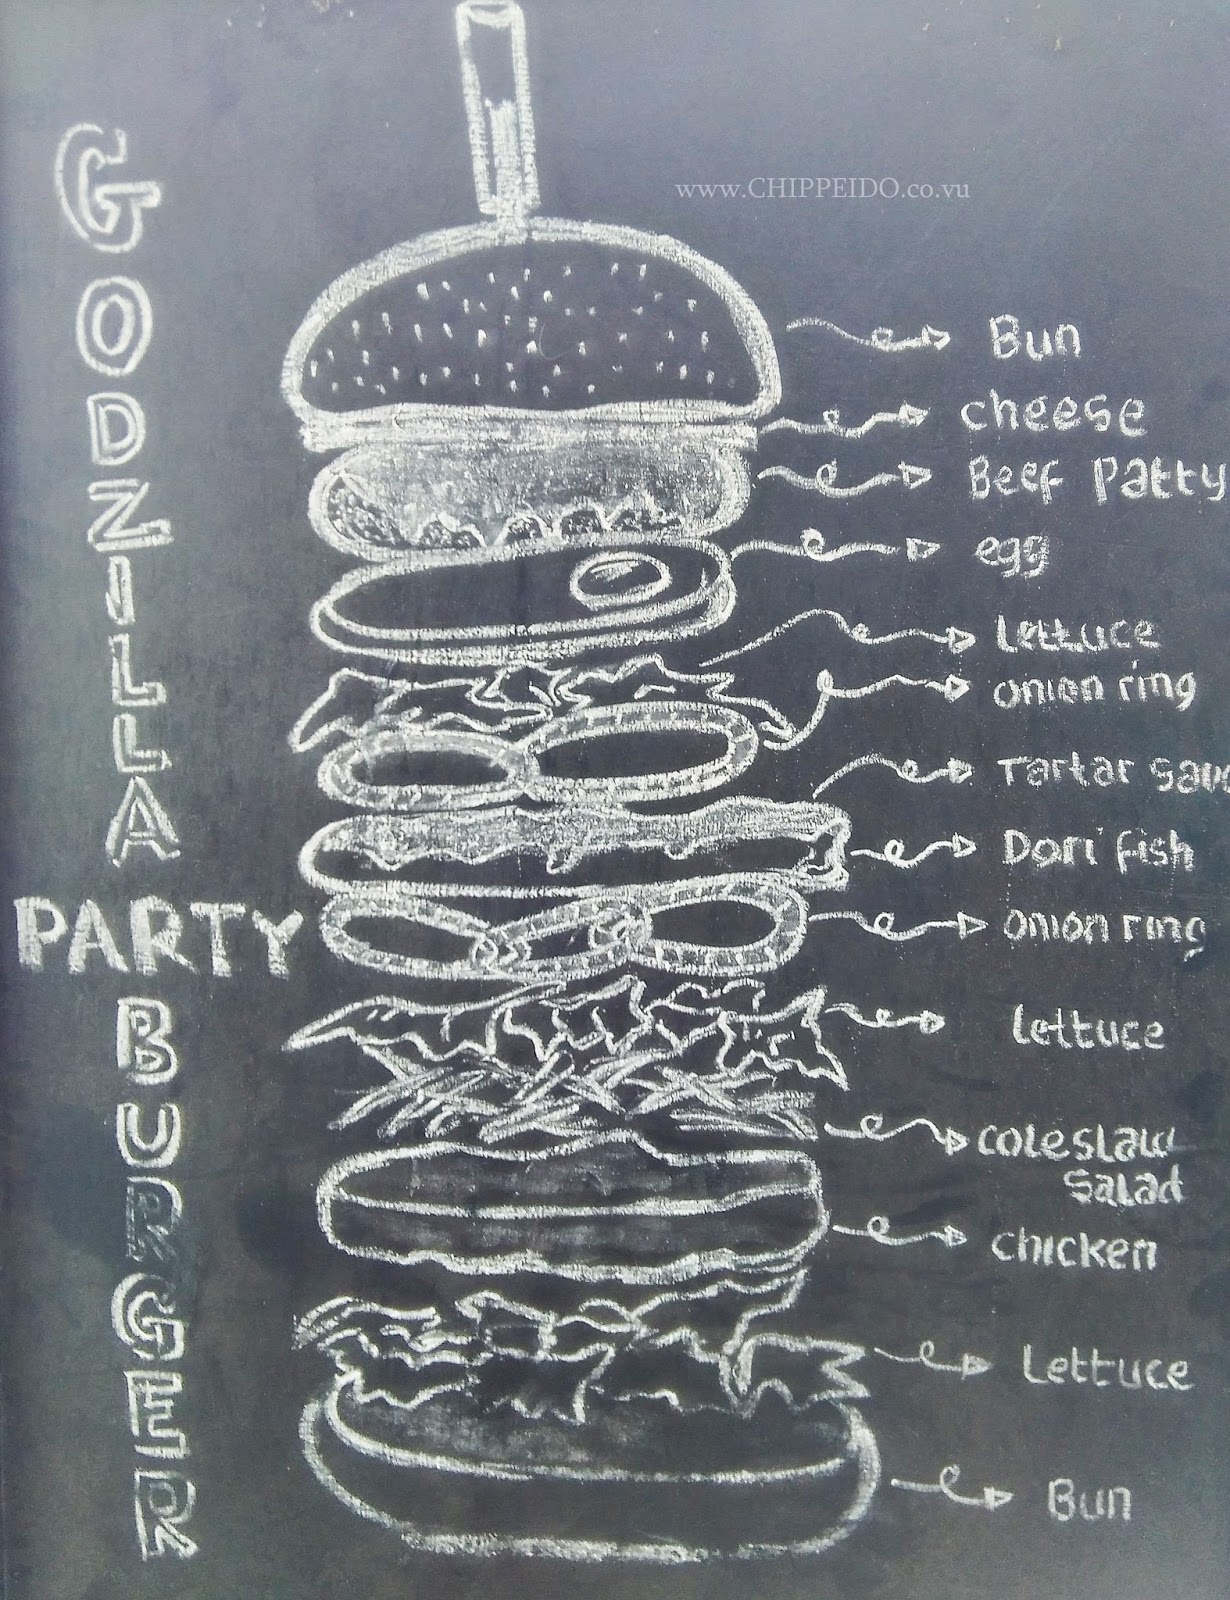 www.CHIPPEIDO.co.vu
GODZILLA
PARTY
BURGER
Bun
cheese
Beef Patty
egg
Lettuce
onion ring
Tartar
Dori fish
onion ring
lettuce
coleslaw
salad
chicken
Lettuce
Bun